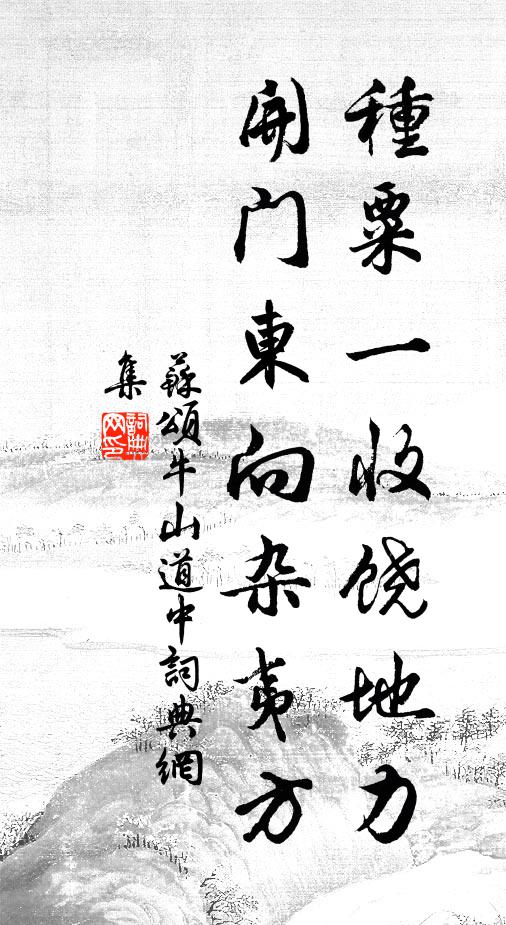 種粟一收饶地力
開门東向杂夷方
蘇頌牛山道中詞典網
集
詞典
网印